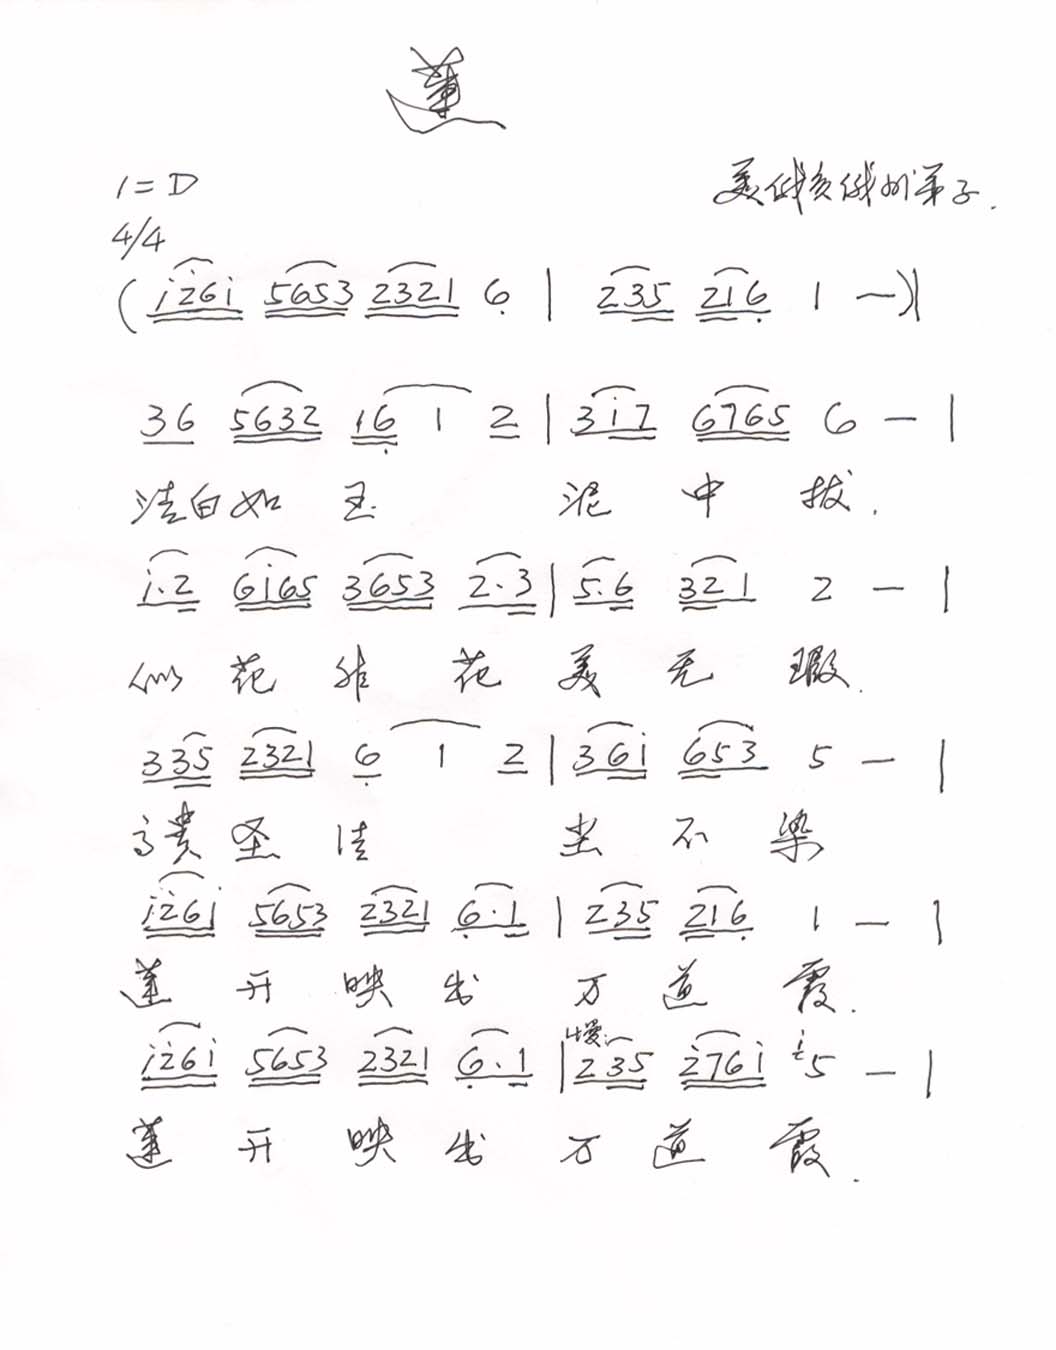 莲
1=D
美俄亥俄州弟子.
4/4
(i̇2̇6i̇ 5653 2321 6̣ | 235 216̣ 1 —)|
36 5632 16̣ 1 2 | 3i̇7 6765 6 — |
洁白如玉 泥中拔.
i̇.2 6i̇65 3653 2.3 | 5.6 321 2 — |
似花非花美无瑕.
335 2321 6̣ 1 2 | 36i̇ 653 5 — |
高贵圣洁 尘不染
i̇2̇6i̇ 5653 2321 6̣.1 | 235 216̣ 1 — |
莲开映出万道霞.
i̇2̇6i̇ 5653 2321 6̣.1 | 慢 235 2̇76i̇ i̇5 — |
莲开映出万道霞.